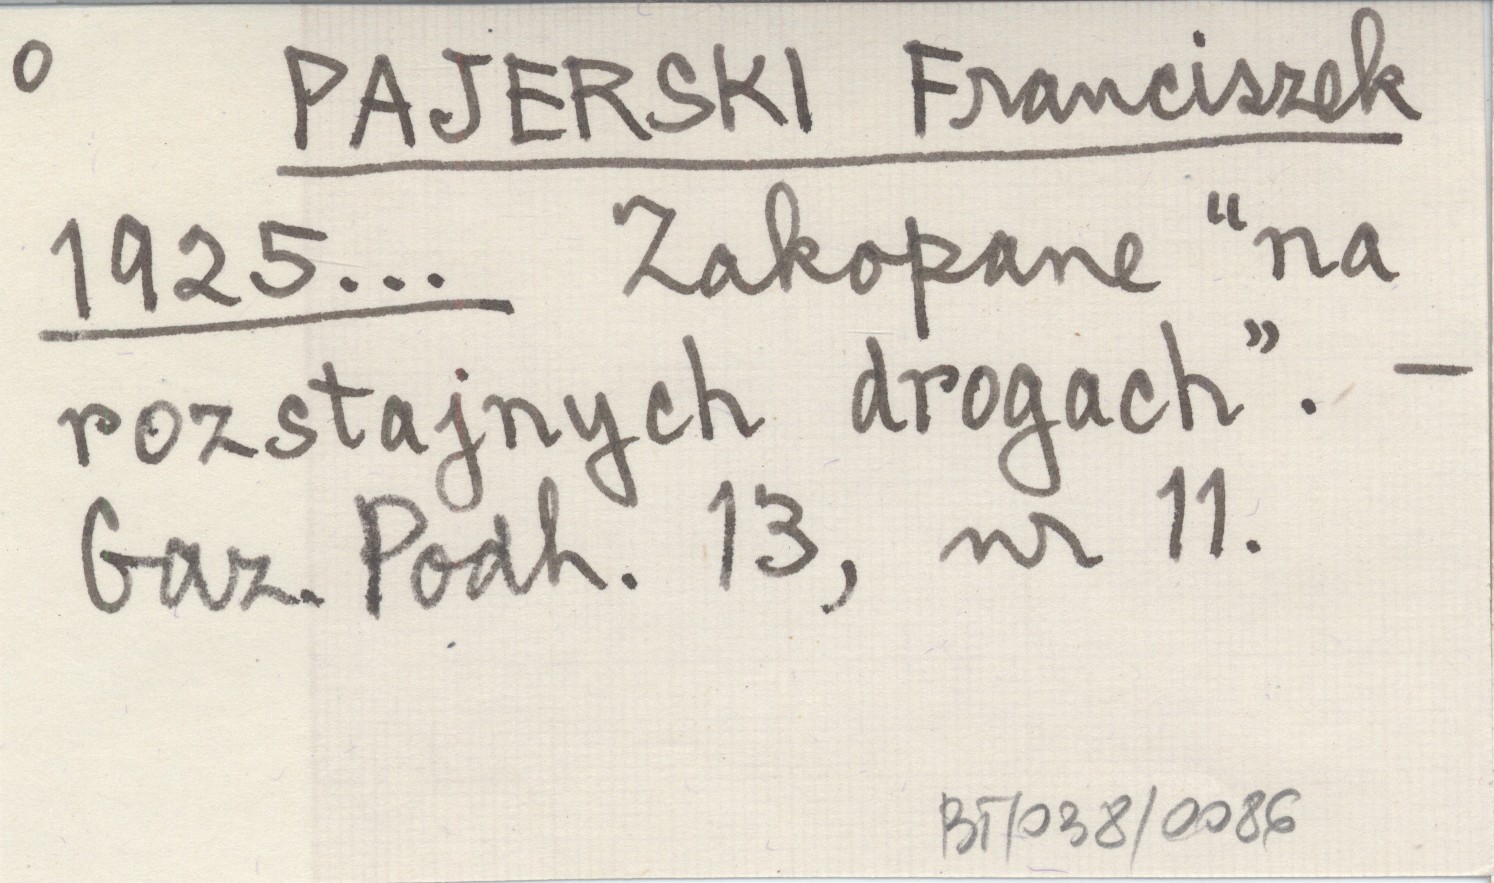 o PAJERSKI Franciszek
1925... Zakopane “na
rozstajnych drogach”. —
Gaz. Podh. 13, nr 11.
BT/038/0086